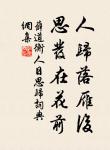 人歸落雁後
思發在花前
薛道衡人日思歸詞典
網集